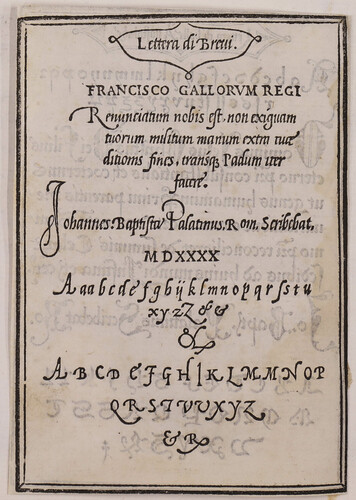 Lettera di Breui.
FRANCISCO GALLORVM REGI
Renunciatum nobis est, non exiguam
tuorum militum manum extra tuæ
ditionis fines, transq; Padum iter
facere.
Johannes Baptista Palatinus, Rom. Scribebat,
MDXXXX
Aaabcdefghijklmnopqrſstu
xyzZ&&
&
ABCDEFGHIKLMMNOP
QRSTVUXYZ
&R